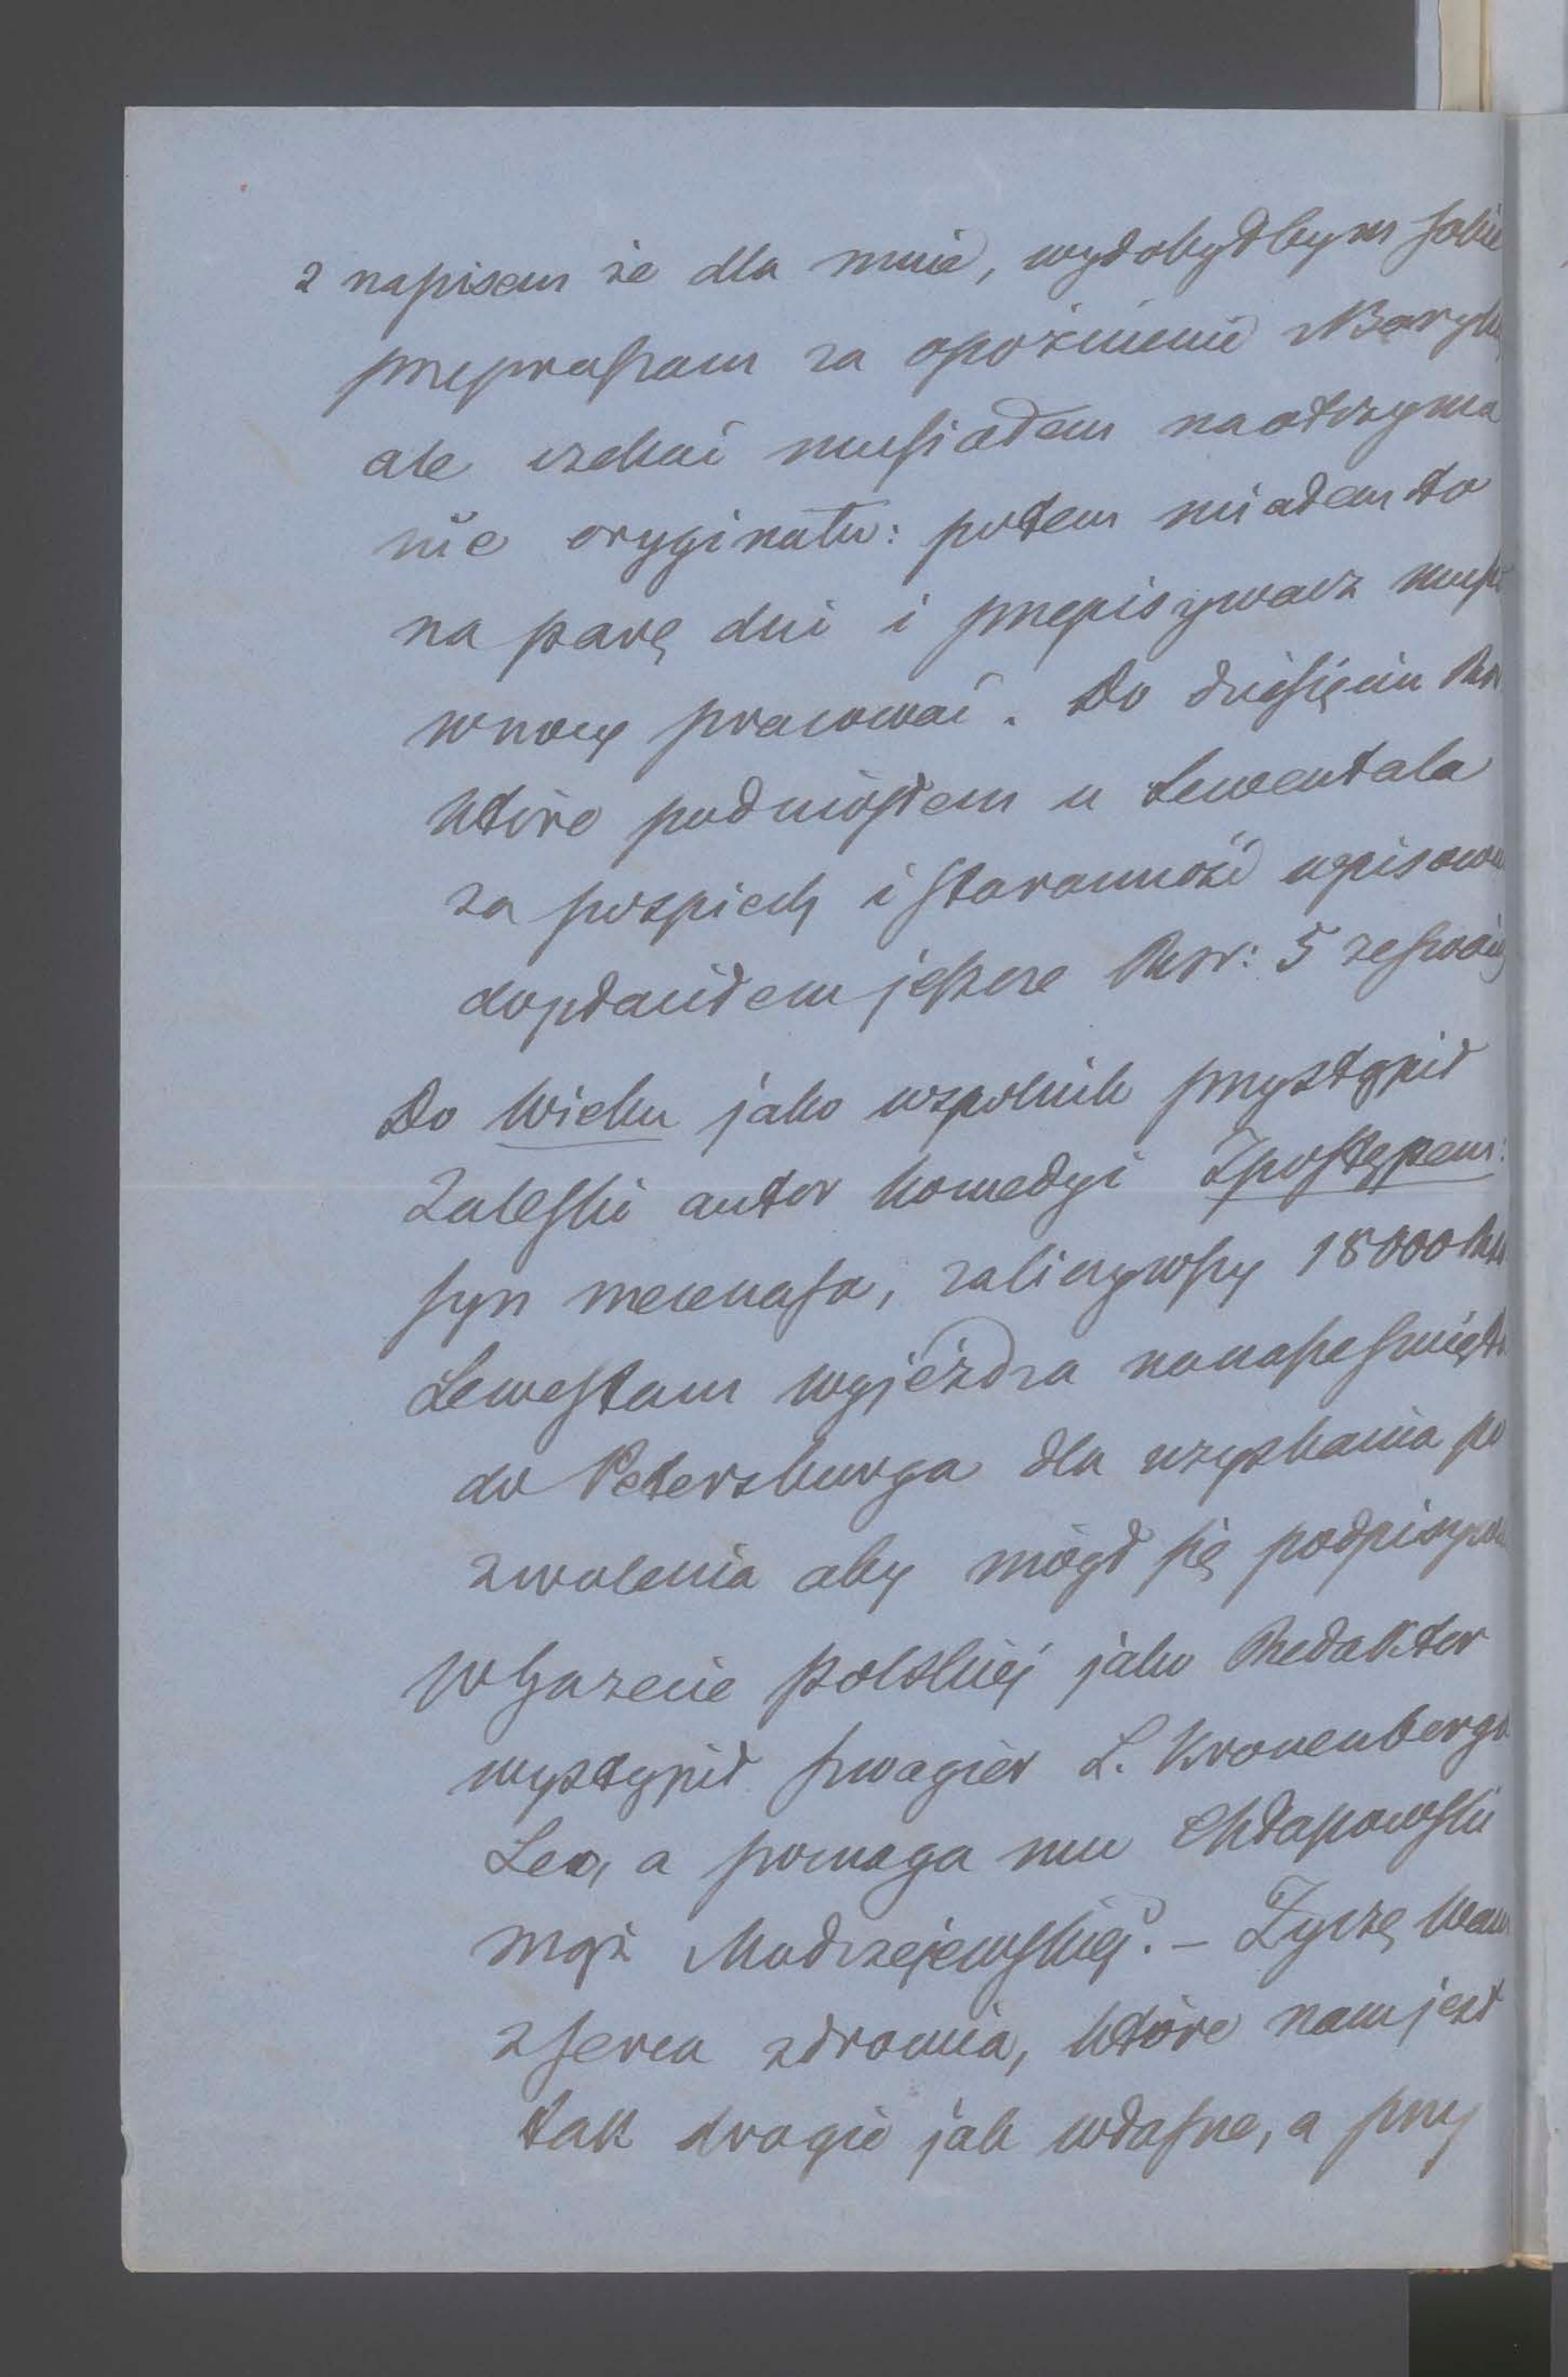 z napisem że dla mnie, wydobyłbym jakie
przepraszam za opóźnienie Maryli
ale czekać musiałem na otrzyma
nie oryginału: potem miałem to
na parę dni i przepisywacz musi
w nocy pracować. Do dziesięciu Rs
które podniosłem u Lewentala
za pospiech i staranność
dopłaciłem jeszcze Rsr: 5
Do Wieku jako wspolnik przystąpił
Zaleski autor komedyi Z postępem:
syn mecenasa, zaliczywszy 18000 Rs
Lewestam wyjeżdza
do Petersburga dla uzyskania po
zwolenia aby mógł się podpisywa
w Gazecie polskiéj jako Redaktor
wystąpił szwagier L. Kronenberga
Leo, a pomaga mu Chłapowski
mąż Modrzejewskiéj. – Życzę Wam
z serca zdrowia, które nam jest
tak drogie jak własne, a przy